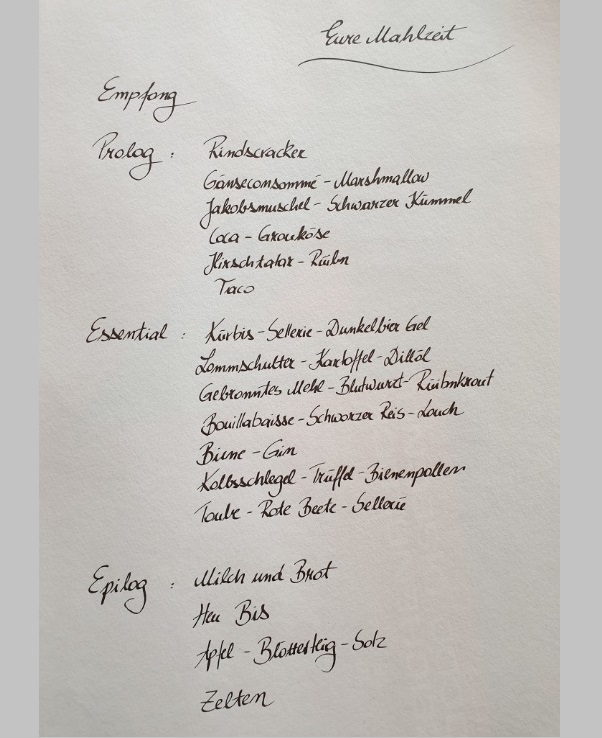 Eure Mahlzeit
Empfang
Prolog : Rindscracker
Gänseconsommé - Marshmallow
Jakobsmuschel - Schwarzer Kümmel
Coca - Graukäse
Hirschtatar - Ruibn
Taco
Essential : Kürbis - Sellerie - Dunkelbier Gel
Lammschulter - Kartoffel - Dillöl
Gebranntes Mehl - Blutwurst - Ruibnkraut
Bouillabaisse - Schwarzer Reis - Lauch
Biene - Gin
Kalbsschlegel - Trüffel - Bienenpollen
Taube - Rote Beete - Sellerie
Epilog : Milch und Brot
Heu Bis
Apfel - Blätterteig - Salz
Zelten